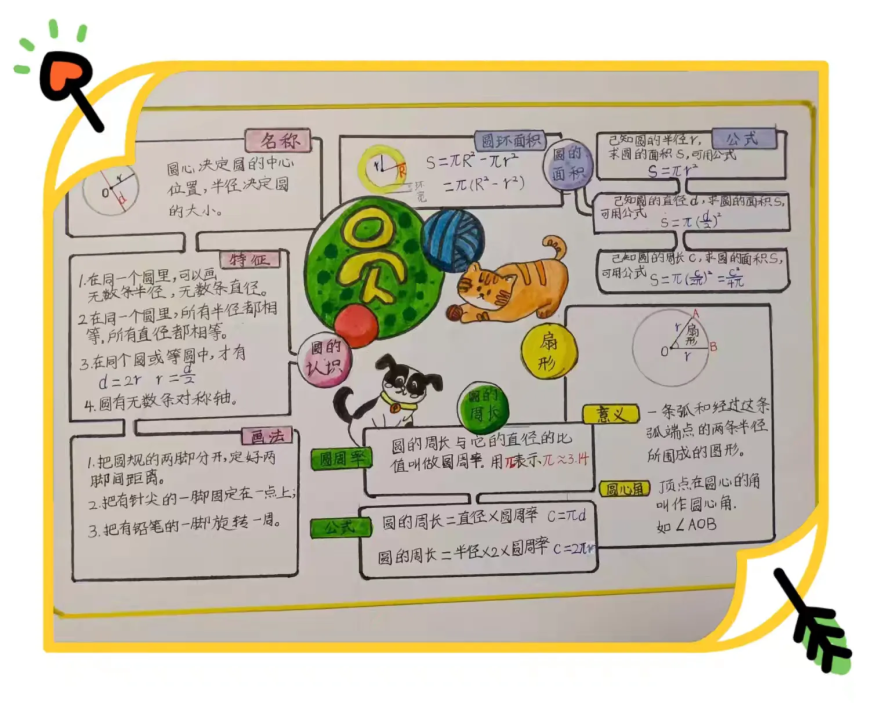 名称
圆心决定圆的中心
位置,半径决定圆
的大小。
O r
d
特征
1.在同一个圆里,可以画
无数条半径,无数条直径。
2.在同一个圆里,所有半径都相
等,所有直径都相等。
3.在同个圆或等圆中,才有
d=2r r=d/2
4.圆有无数条对称轴。
画法
1.把圆规的两脚分开,定好两
脚间距离。
2.把有针尖的一脚固定在一点上;
3.把有铅笔的一脚旋转一周。
圆的
认识
圆
圆环面积
r R
环
宽
S=πR²-πr²
=π(R²-r²)
圆的
面积
公式
已知圆的半径r,
求圆的面积S,可用公式
S=πr²
已知圆的直径d,求圆的面积S,
可用公式 S=π(d/2)²
已知圆的周长C,求圆的面积S,
可用公式 S=π(C/2π)²=C²/4π
扇
形
A
r 扇形
O B
r
意义
一条弧和经过这条
弧端点的两条半径
所围成的图形。
圆心角
顶点在圆心的角
叫作圆心角.
如∠AOB
圆的
周长
圆周率
圆的周长与它的直径的比
值叫做圆周率.用π表示π≈3.14
公式
圆的周长=直径×圆周率 C=πd
圆的周长=半径×2×圆周率 C=2πr